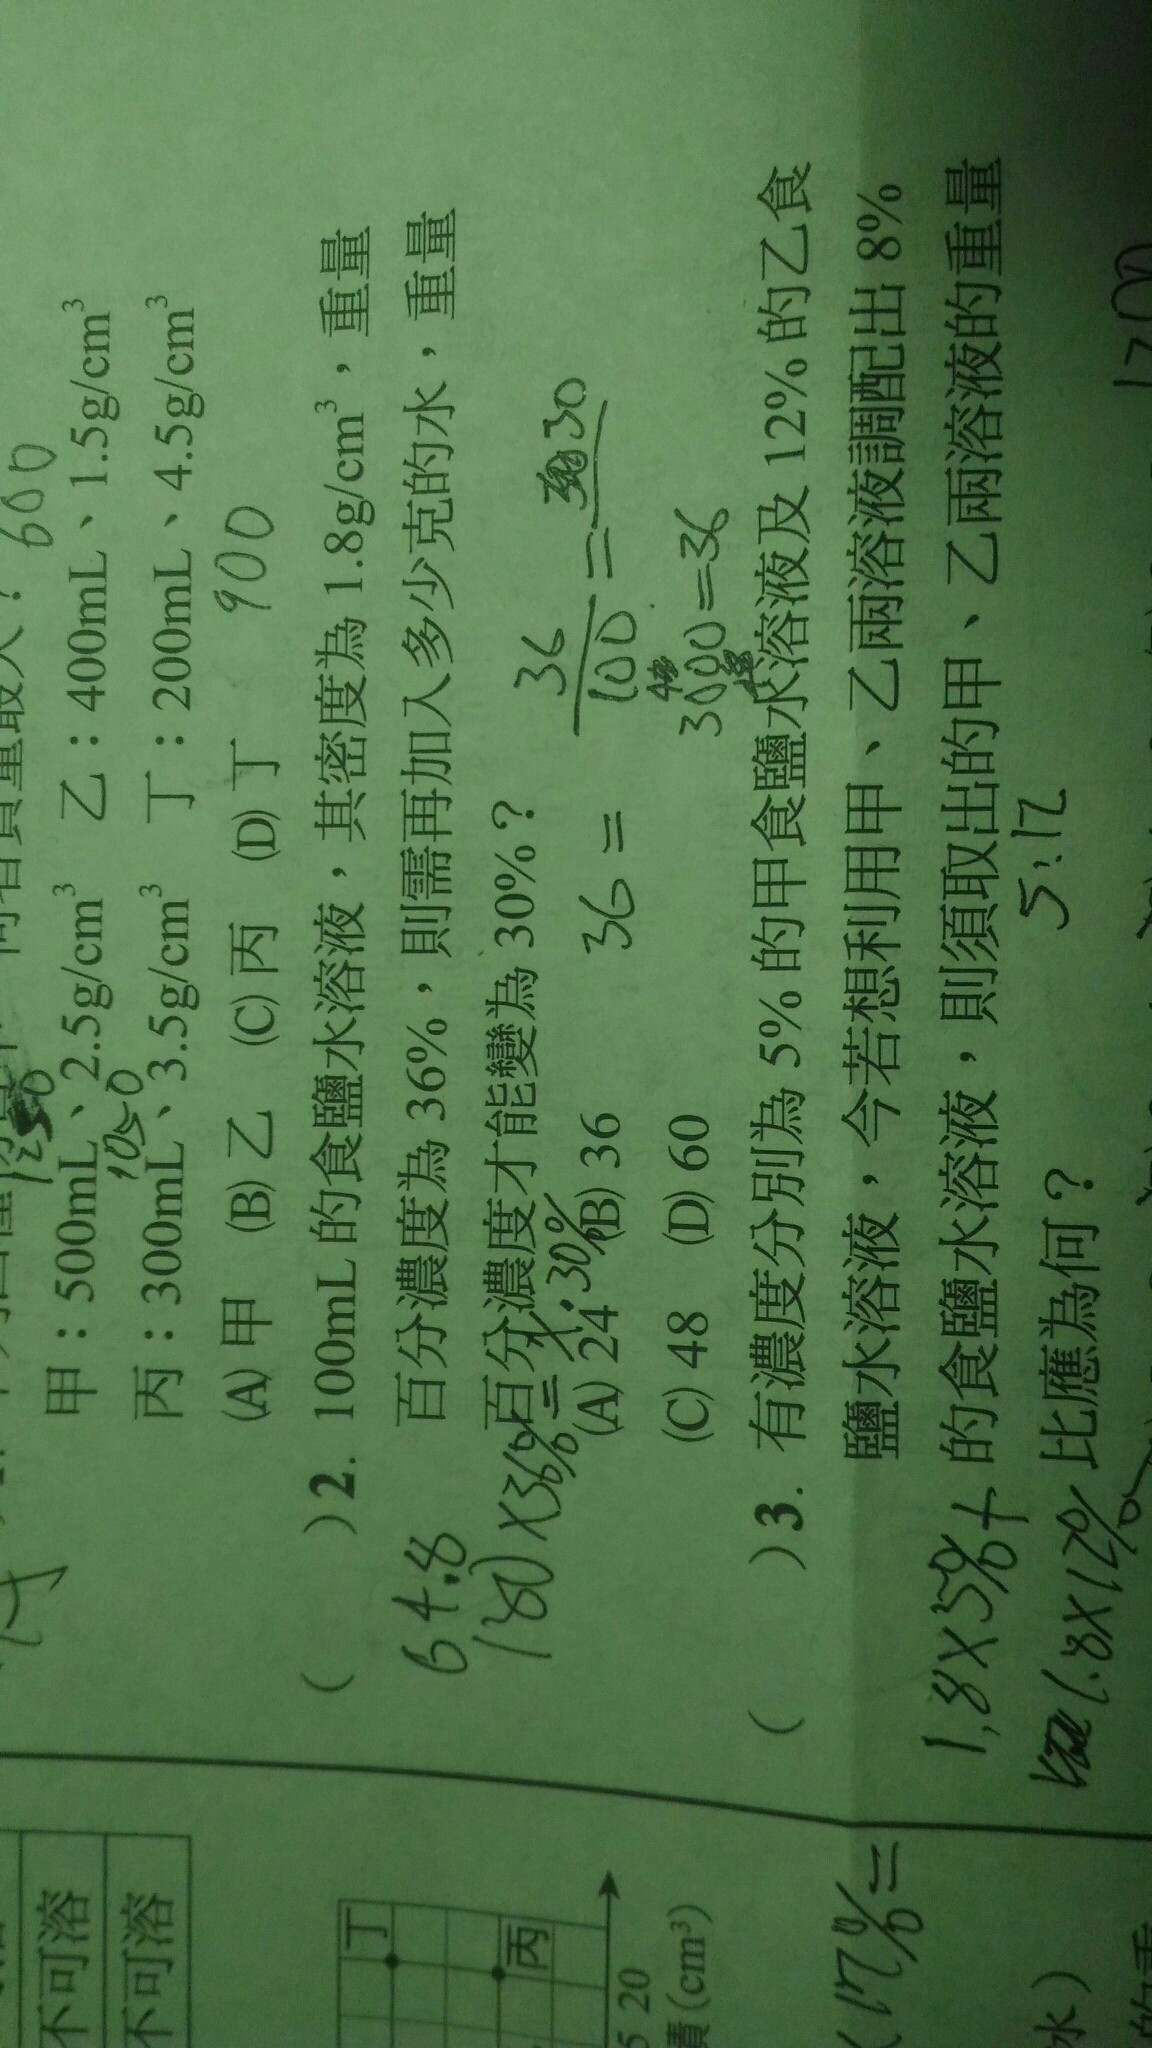 600
甲：500mL、2.5g/cm³ 乙：400mL、1.5g/cm³
1050
丙：300mL、3.5g/cm³ 丁：200mL、4.5g/cm³
900
(A) 甲 (B) 乙 (C) 丙 (D) 丁
( ) 2. 100mL 的食鹽水溶液，其密度為 1.8g/cm³，重量
百分濃度為 36%，則需再加入多少克的水，重量
百分濃度才能變為 30%？
64.8
180×36%=
30%
36/100 = 30
36=
3000=36
(A) 24 (B) 36
(C) 48 (D) 60
( ) 3. 有濃度分別為 5% 的甲食鹽水溶液及 12% 的乙食
鹽水溶液，今若想利用甲、乙兩溶液調配出 8%
的食鹽水溶液，則須取出的甲、乙兩溶液的重量
比應為何？
5:12
1.8×5%+
1.8×12%
1200
不可溶
不可溶
丁
丙
20
(cm³)
12%=
水）